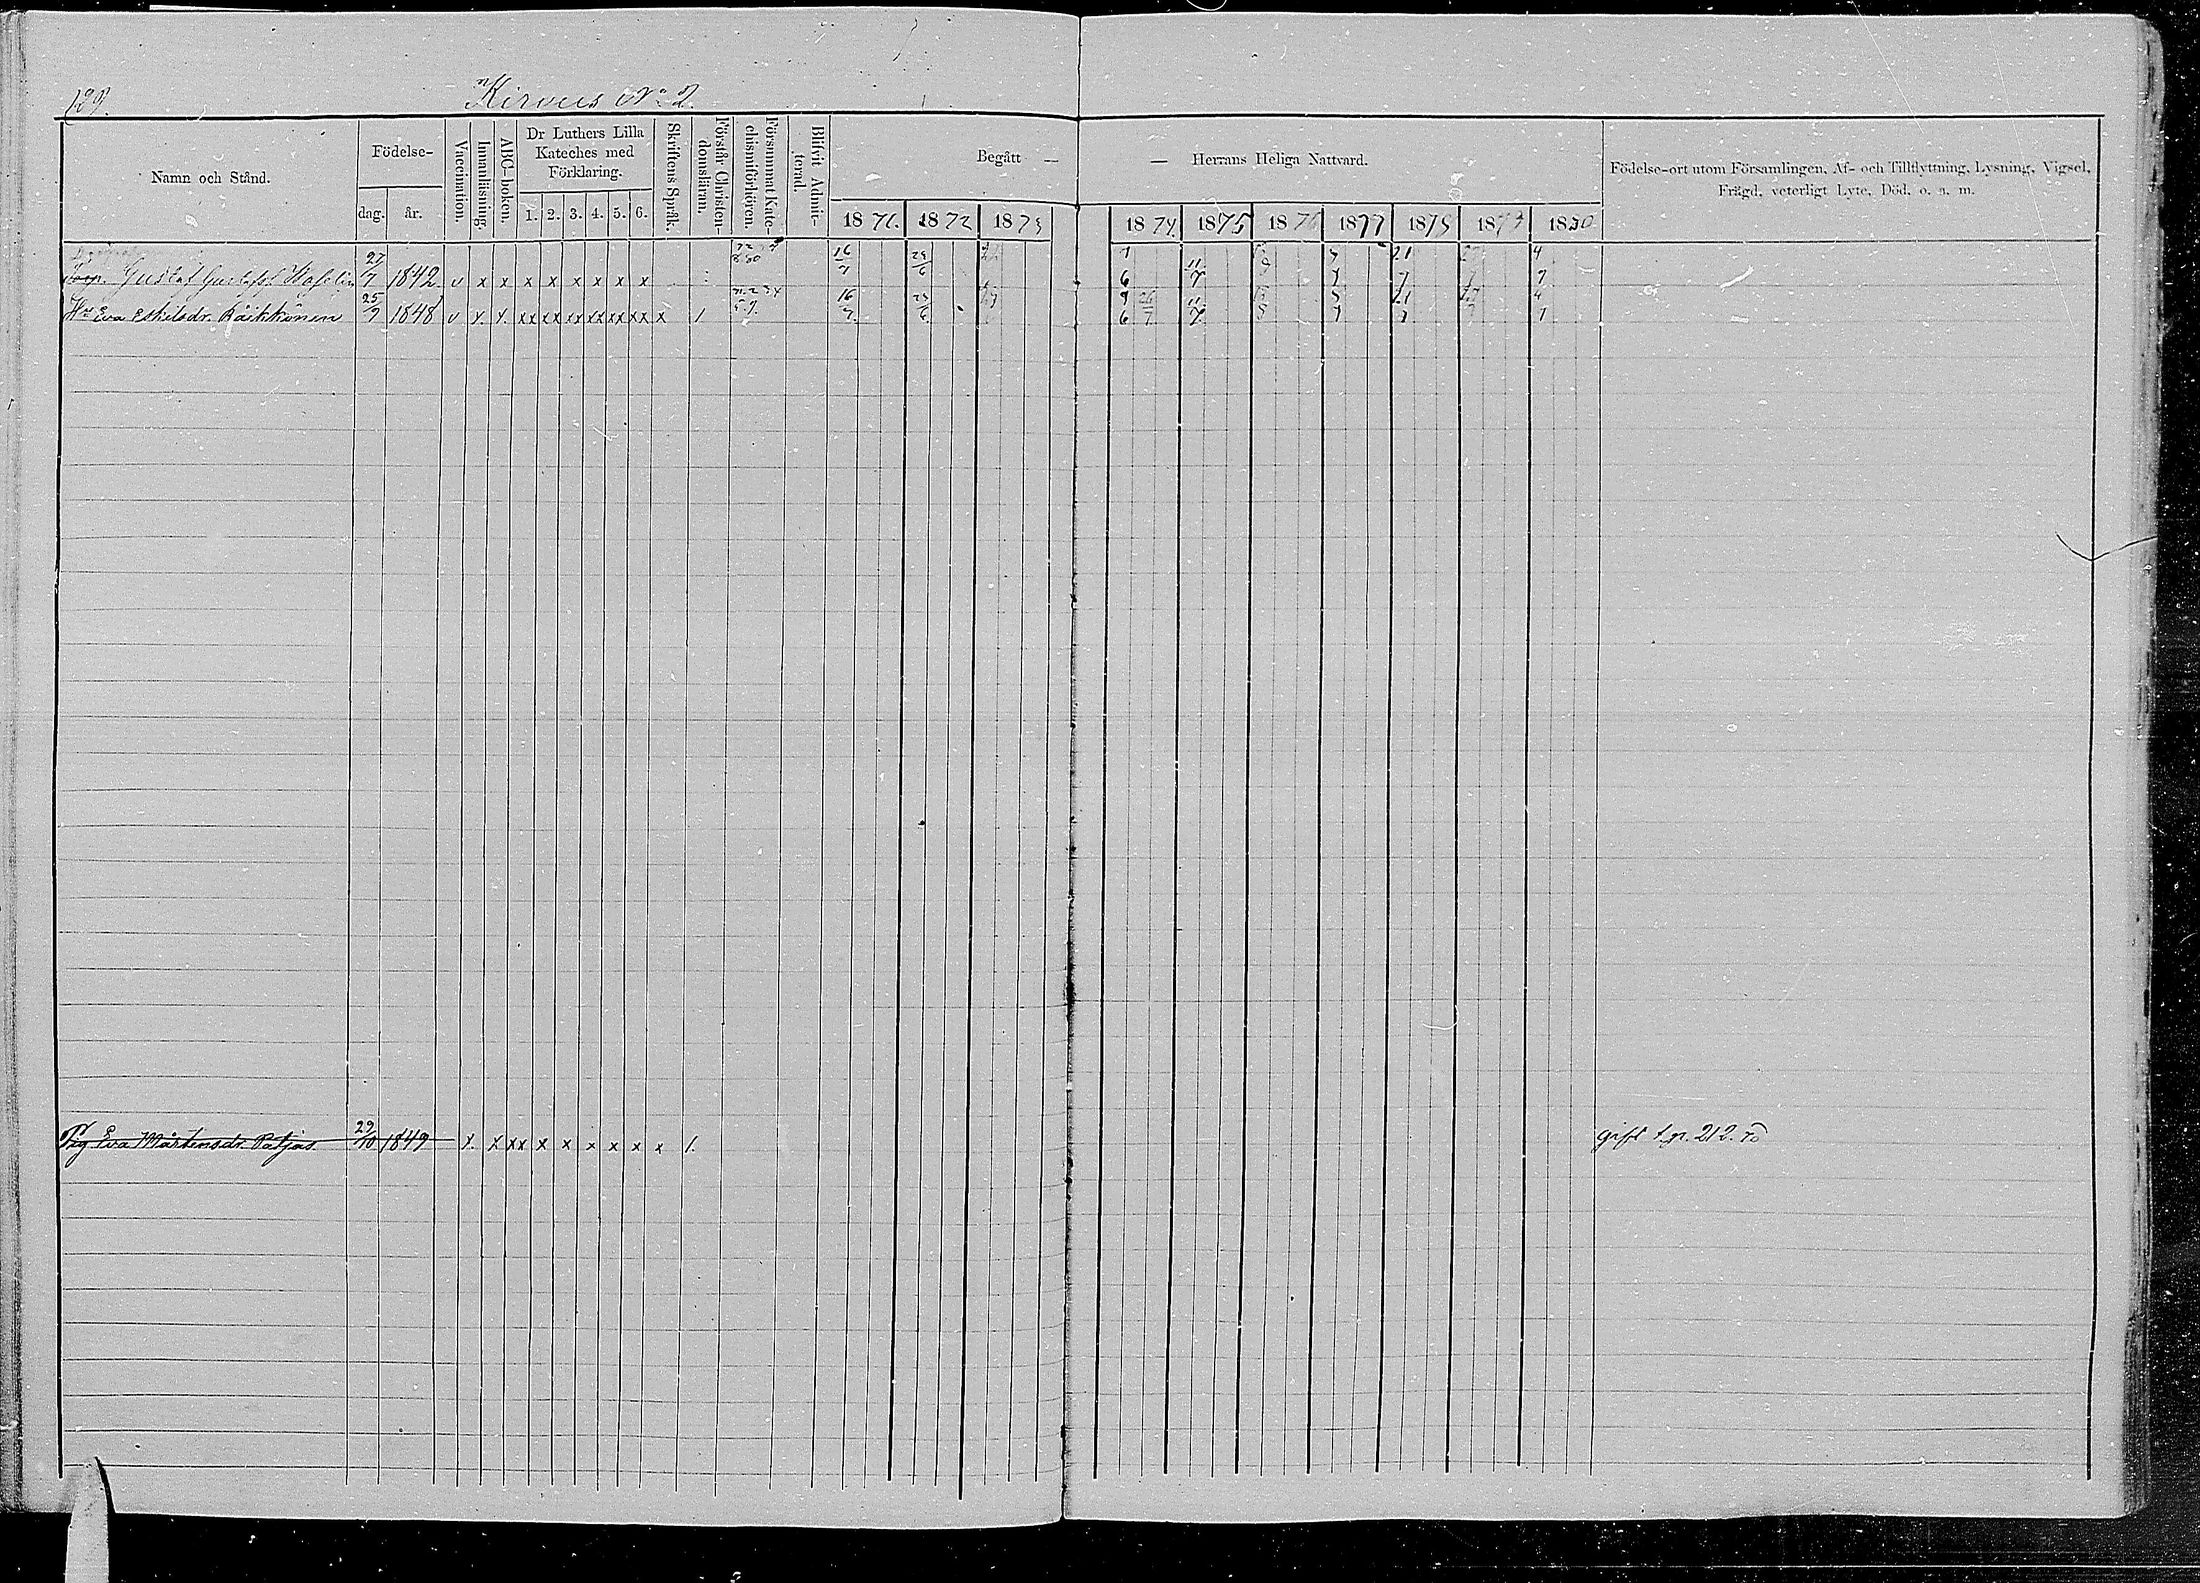 129.
Kirvus No 2.
Namn och Stånd.
Födelse-
dag.
år.
Vaccination.
Innanläsning.
ABC-boken.
Dr Luthers Lilla
Kateches med
Förklaring.
1. 2. 3. 4. 5. 6.
Skriftens Språk.
Förstår Christen-
domsläran.
Försummat Kate-
chismiförhören.
Blifvit Admit-
terad.
Begått —
— Herrans Heliga Nattvard.
1871. 1872 1873 1874. 1875 1876 1877 1878 1879 1880
Födelse-ort utom Församlingen, Af- och Tillflyttning, Lysning, Vigsel,
Frägd, veterligt Lyte, Död. o. s. m.
Gustaf Gustafss. 27/7 1842. v x x x x x x x x 16/7 23/6 7/6 11/7 21/7 4/7
Hu Eva Eskilsdr. Räikkönen 25/7 1848 v x. x. xx xx xx xx xx xx x 1 16/7. 23/6. 7/6 26/7 11/7. 21/7 4/7
Pig Eva Mårtensdr. Patjas. 29/10 1849 x. x xx x x x x x x 1. gift s. p. 212.